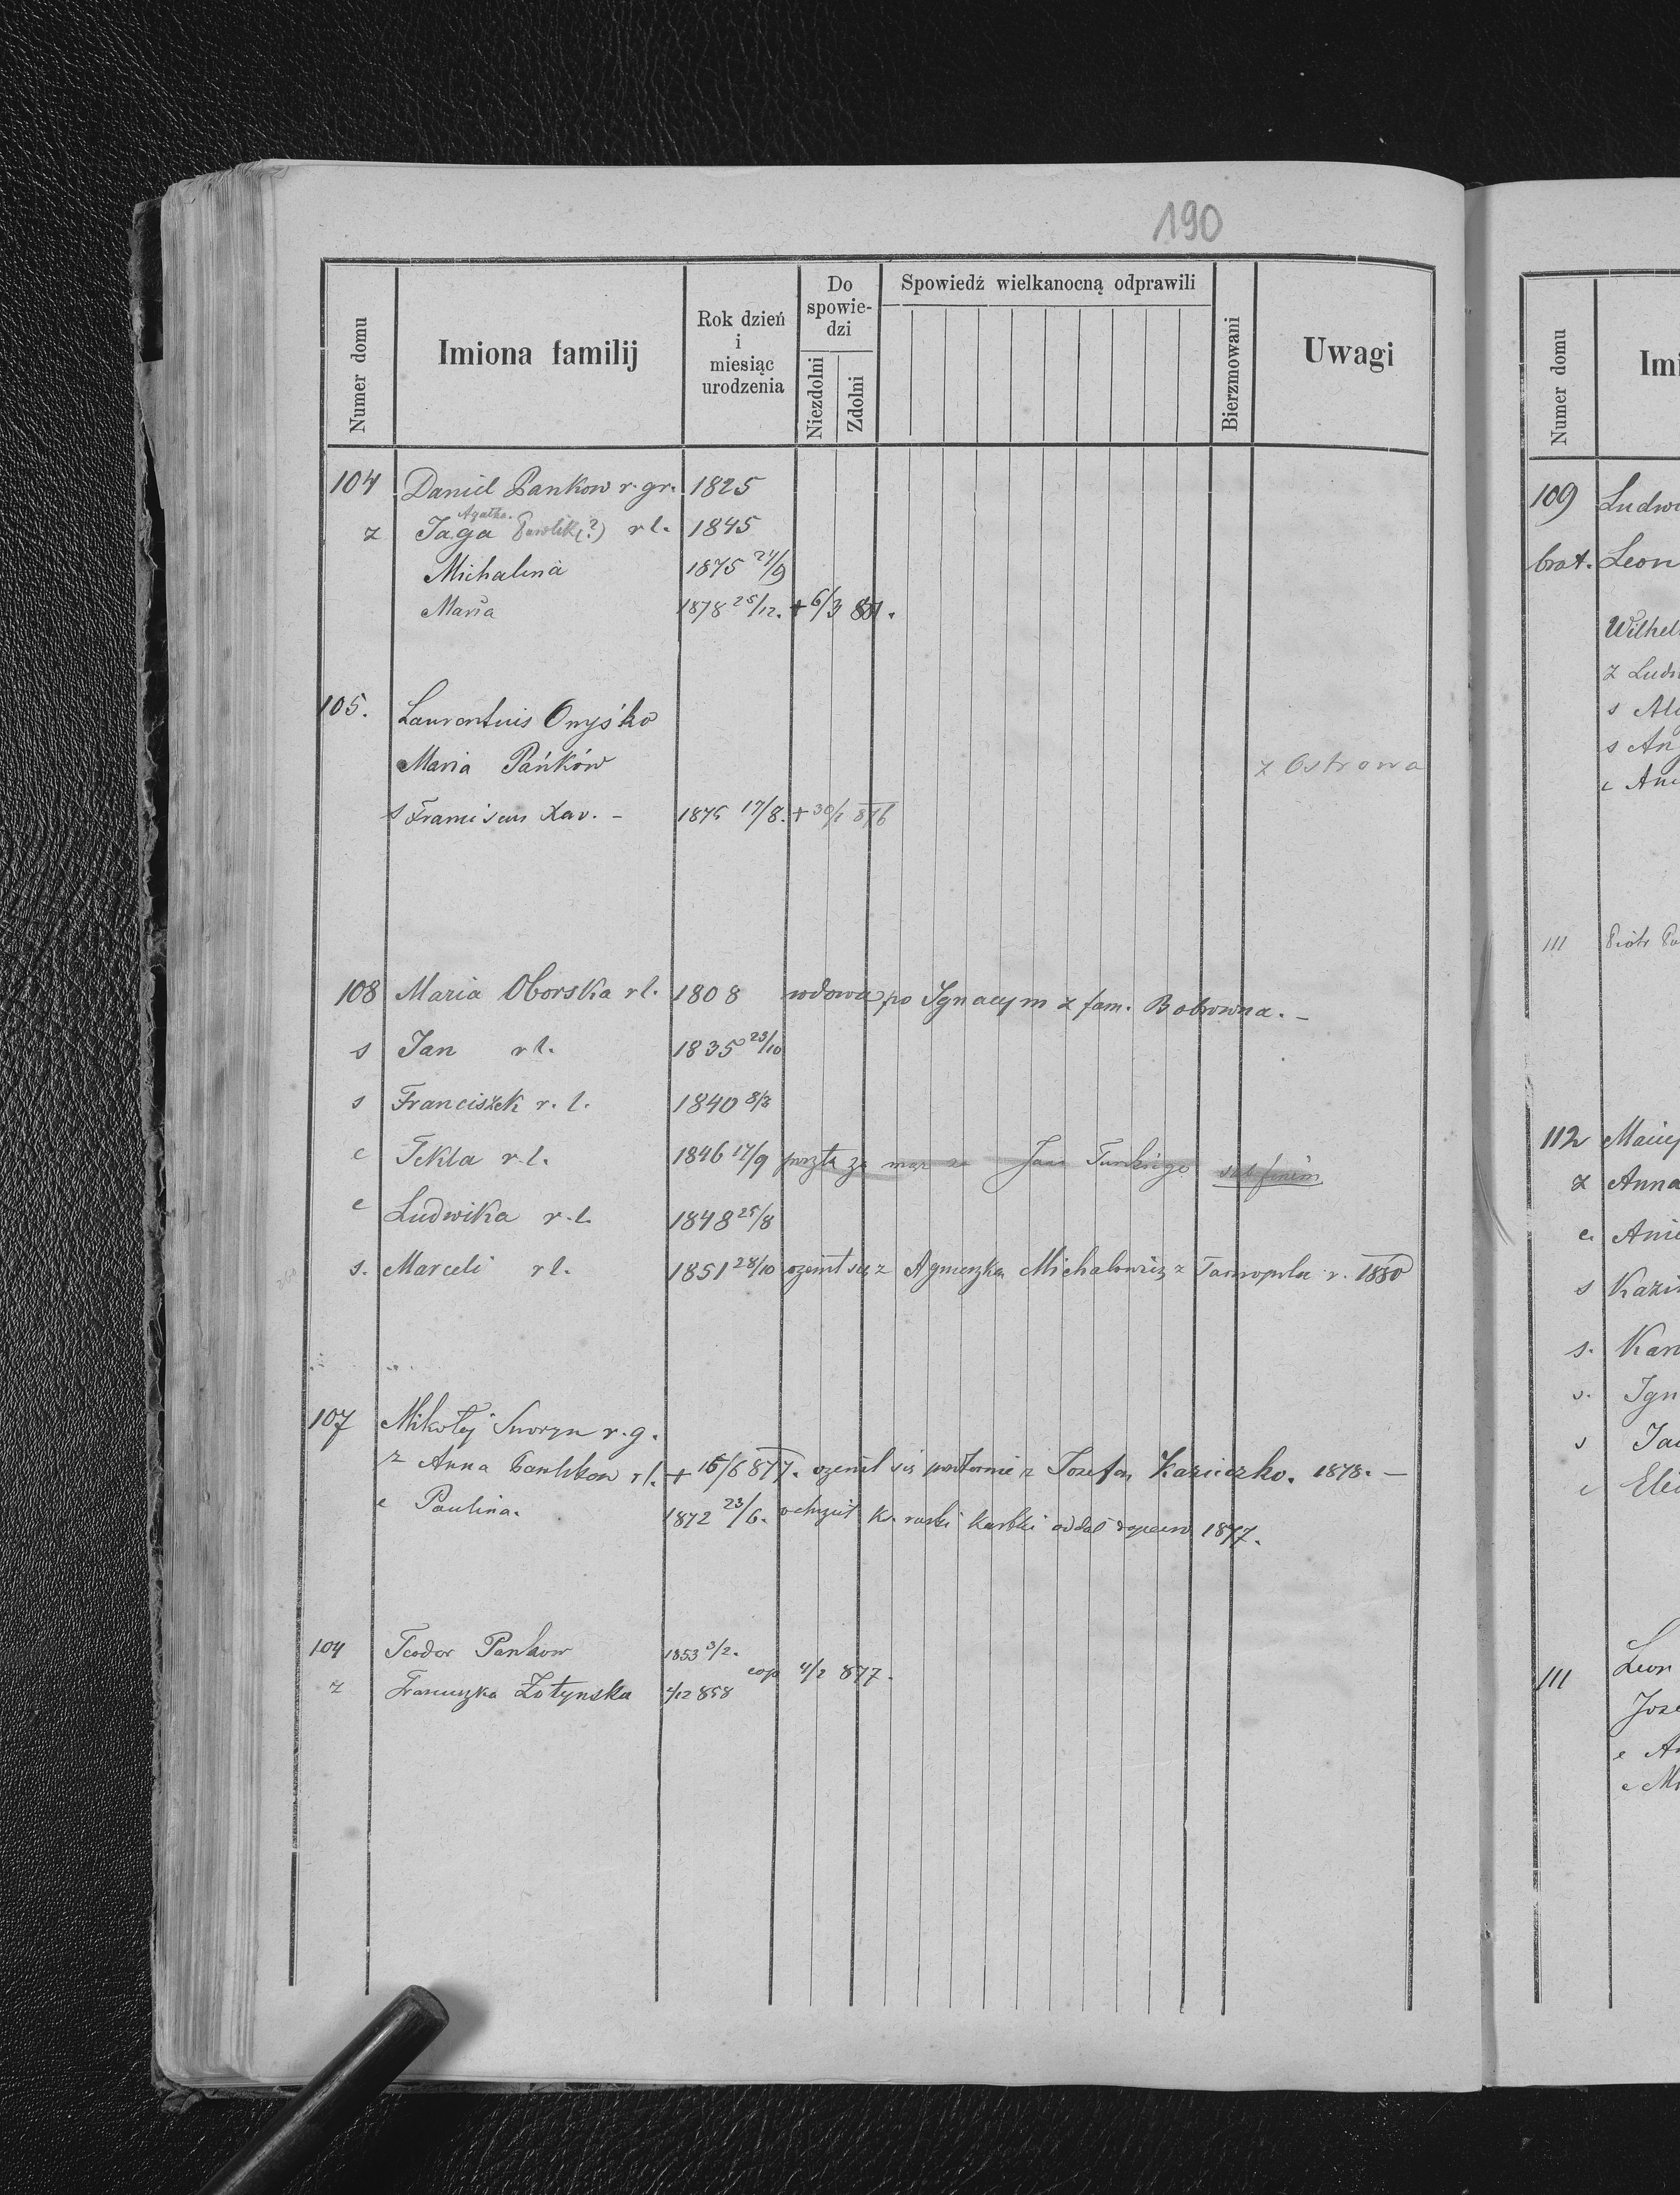 190
Numer domu
Imiona familij
Rok dzień i miesiąc urodzenia
Do spowiedzi
Niezdolni
Zdolni
Spowiedź wielkanocną odprawili
Bierzmowani
Uwagi
104 Daniel Pankow r. gr. 1825
Agatha.
z Jaga Pawlik (?) rl. 1845
Michalina 1875 24/9
Maria 1878 25/12. + 6/3 881.
105. Laurentuis Onyśko
Maria Pańków z Ostrowa
s Franciscus Xav. - 1875 17/8. + 30/1 876
108 Maria Oborska rl. 1808 wdowa po Ignacym z fam. Bobrowna. -
s Jan rl. 1835 23/10
s Franciszek r. l. 1840 8/3
c Tekla r.l. 1846 17/9 poszła za mąż za Jana
c Ludwika r.l. 1848 25/8
s. Marceli rl. 1851 28/10 ożenił się z Agnieszką Michałowicz z Tarnopola r. 1880
107 Mikołaj r. g.
z Anna rl. + 15/6 877. ożenił się powtornie z Józefą Kaziczko. 1878. -
c Paulina. 1872 23/6. ochrzcił Ks. ruski kartki oddał dopiero 1877.
104 Teodor Pankow 1853 3/2.
cop 4/2 877.
z Franciszka Zotynska 4/12 858
Numer domu
Imi
109 Ludwi
brat. Leon
Wilhel
z Ludw
s Al
s An
c An
111 Piotr Pa
112 Maciej
z Anna
c. Anie
s Kazi
s. Kar
s. Ign
s Ja
c Ele
111 Leon
Joze
c A
c M